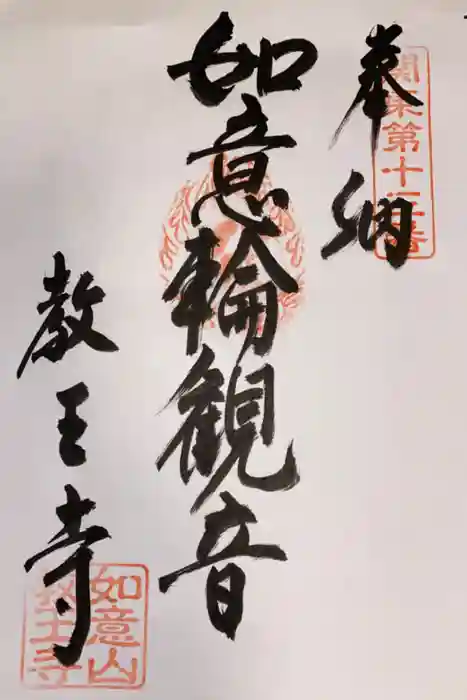 奉納
関東第十三番
如意輪観音
教王寺
如意山
教王寺